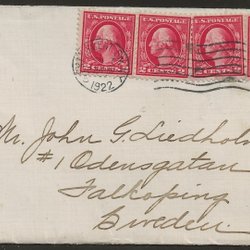 U.S. POSTAGE U.S. POSTAGE
2 CENTS 2 2 CENTS 2
1922
Mr. John G. Liedholm
#1 Odensgatan
Falkoping
Sweden